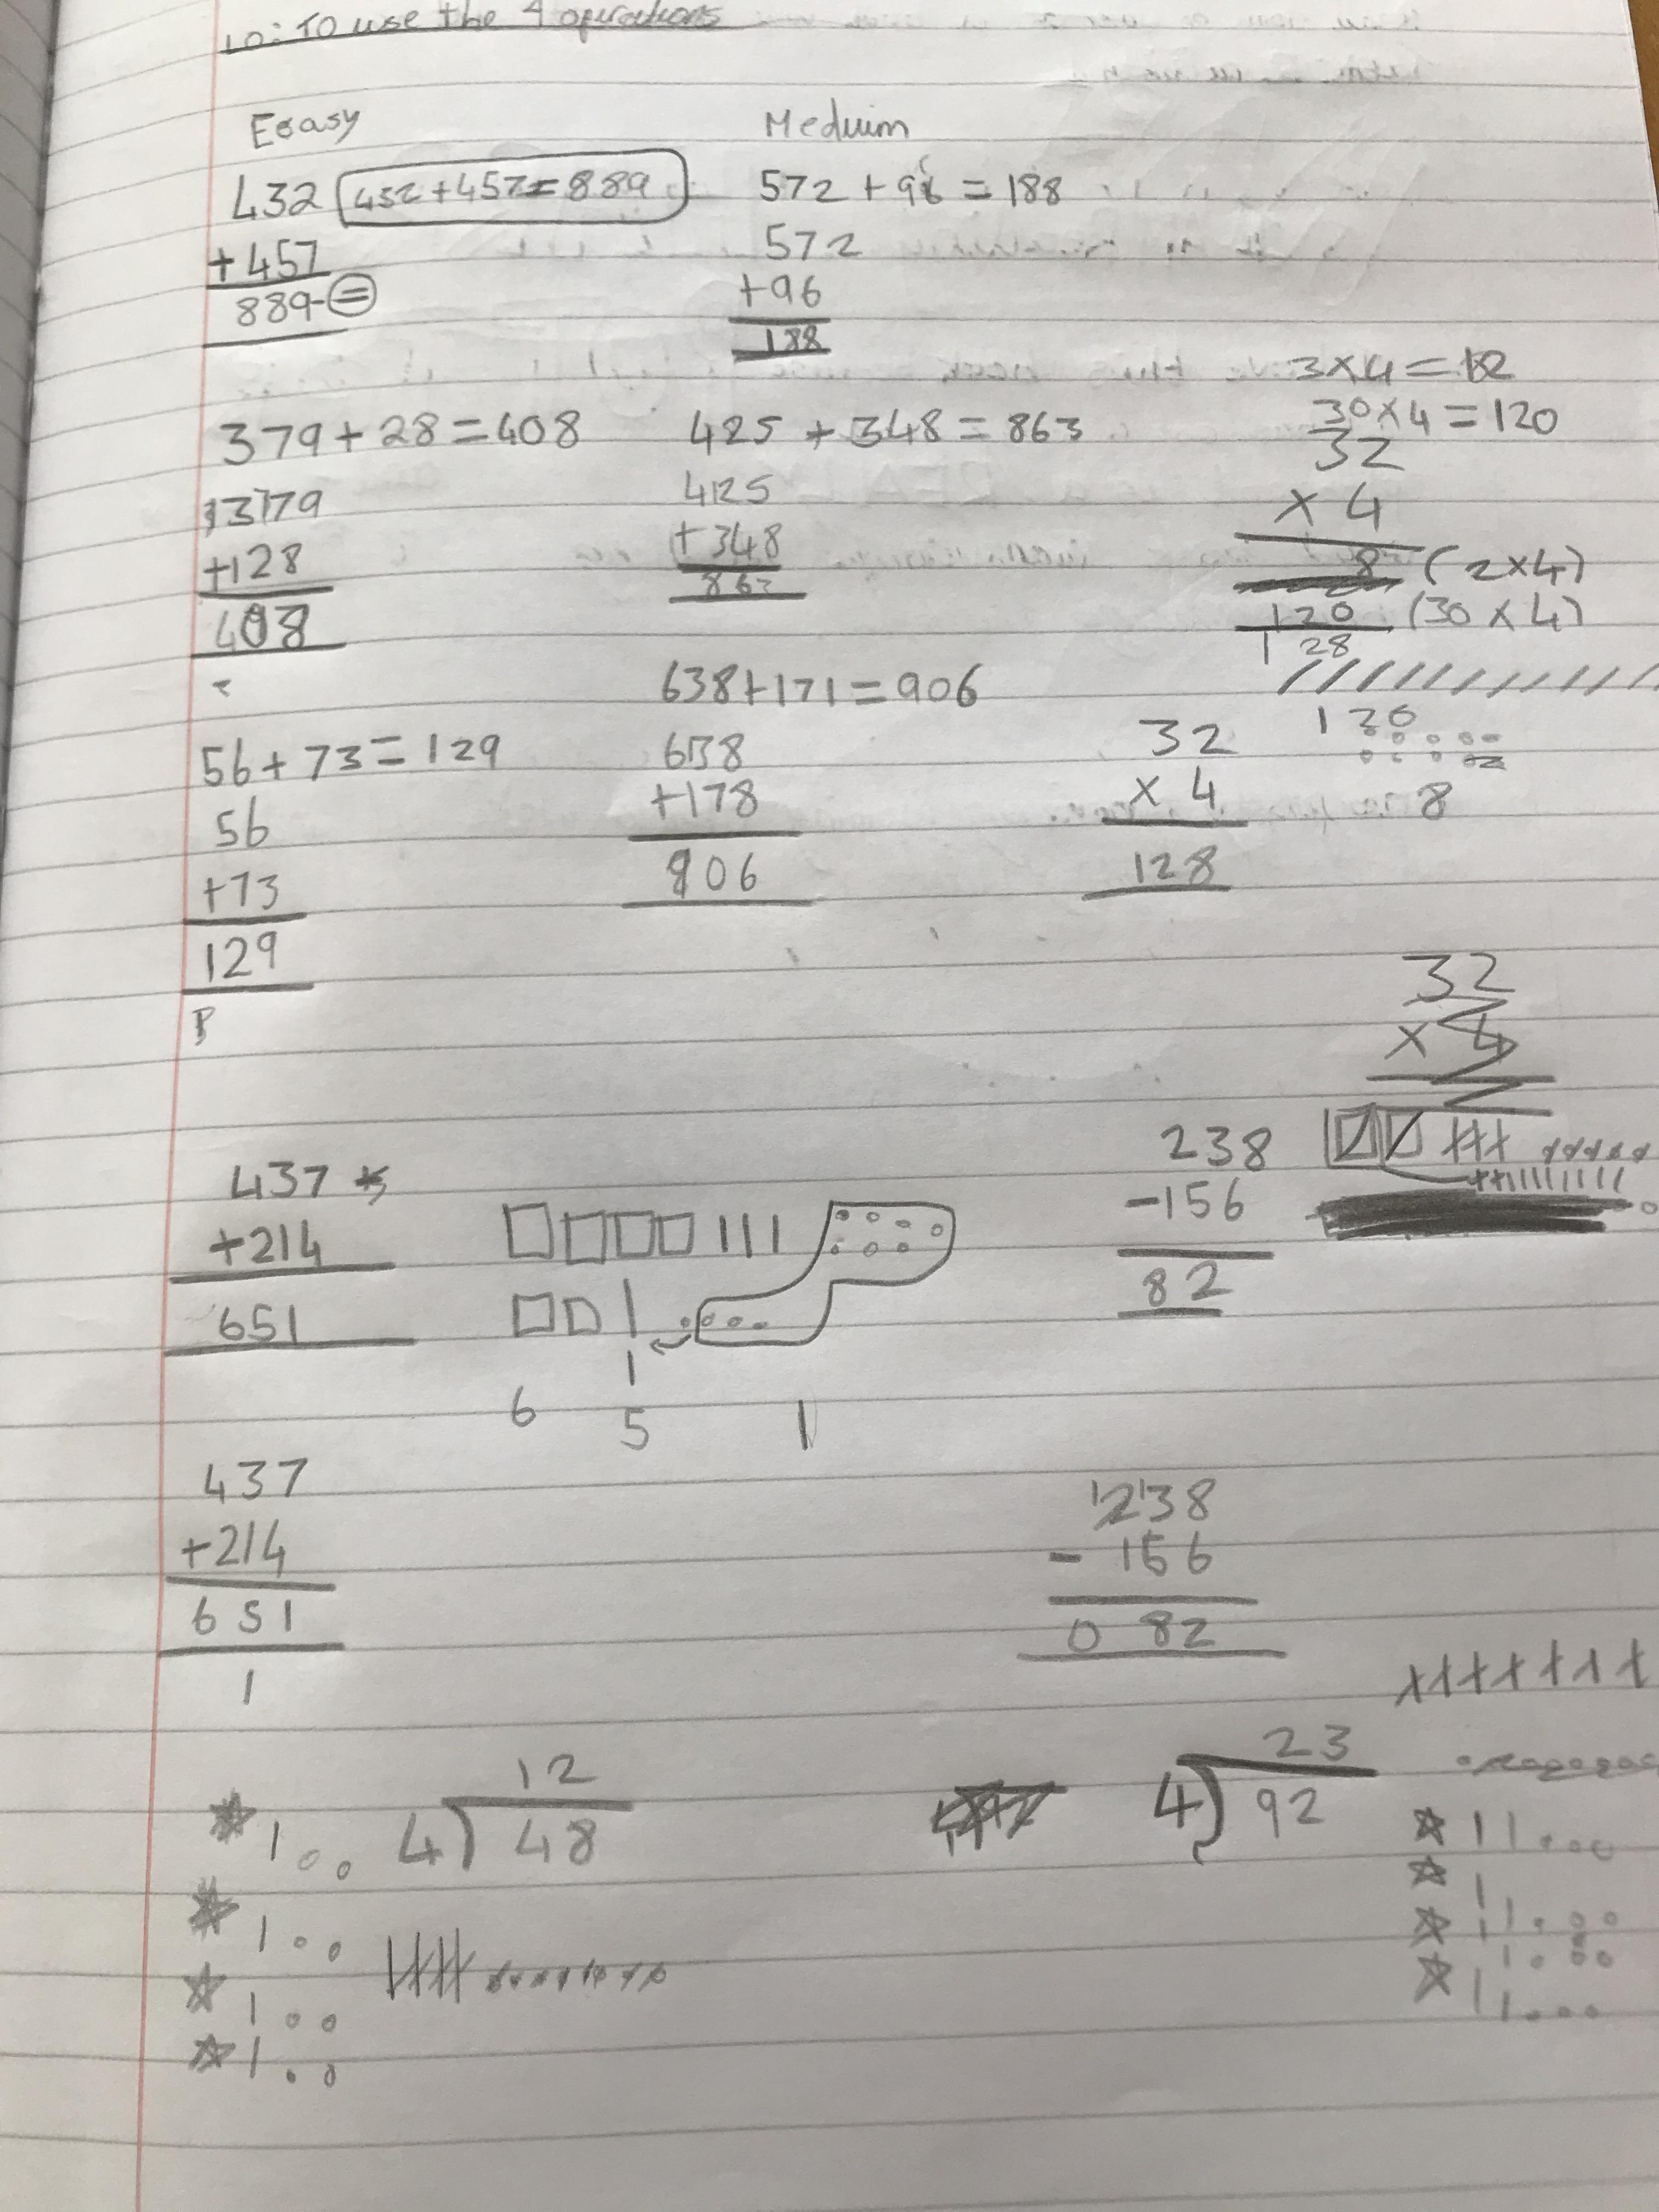 LO: To use the 4 operations
Eoasy
Meduim
432
432+457=889
+457
889 =
572 + 96 = 188
572
+96
188
379 + 28 = 408
379
+128
408
425 + 348 = 863
425
+348
863
3×4=12
30×4=120
32
× 4
8 (2×4)
120 (30×4)
128
56+73=129
56
+73
129
638+171=906
638
+178
906
32
× 4
128
120
8
32
× 4
437
+214
651
6 5 1
238
-156
82
437
+214
651
1
238
- 156
0 82
12
4) 48
23
4) 92